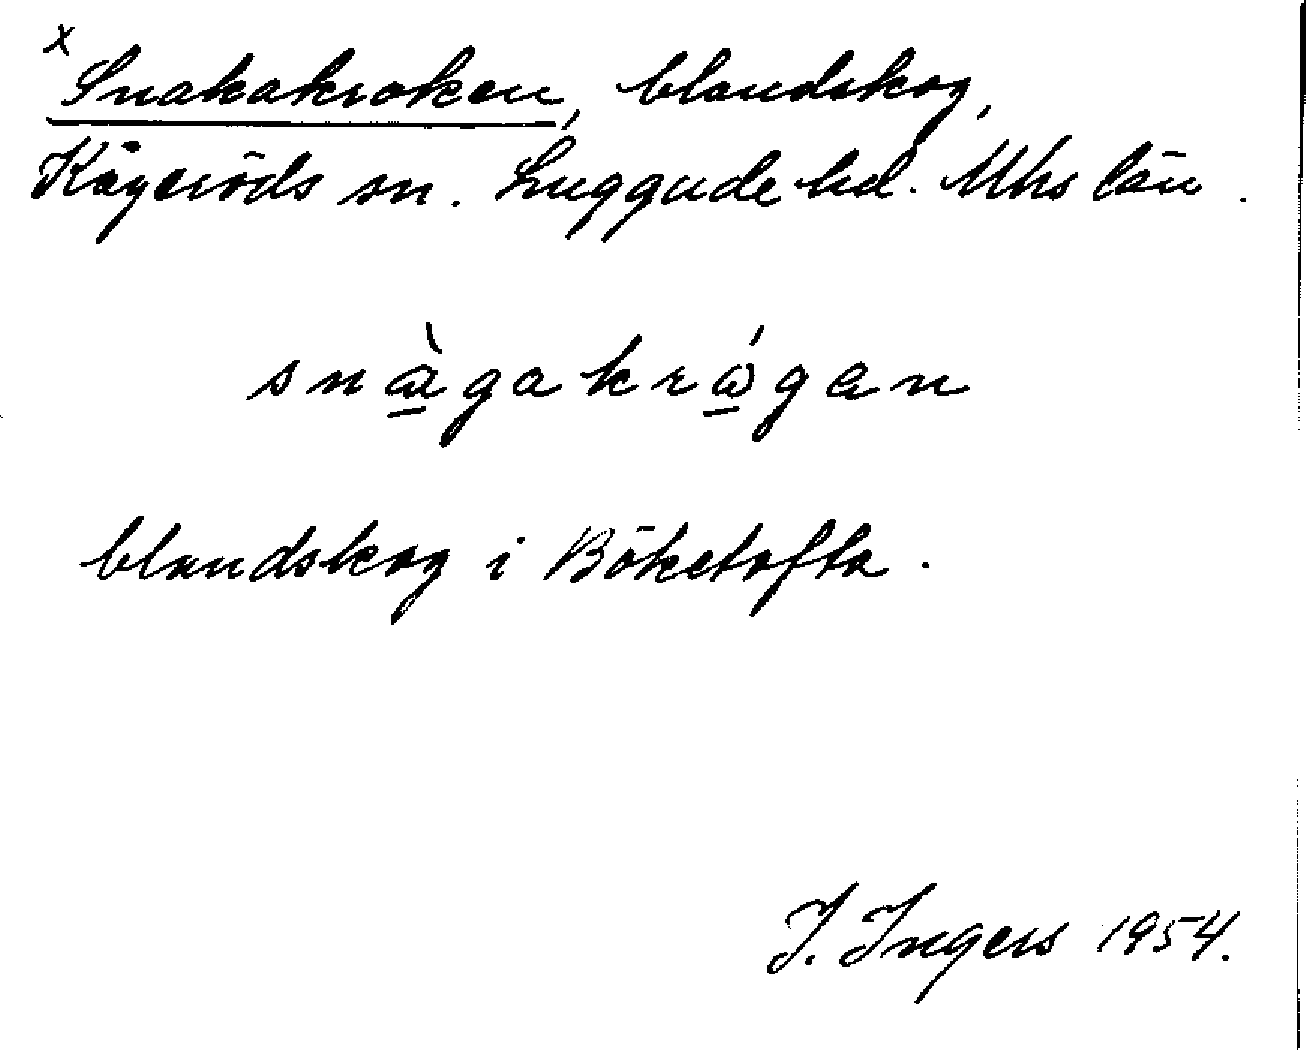 x
Snakakroken, blandskog,
Kågeröds sn. Luggude hd. Mhs län.
snὰ̱gakrώ̱gan
blandskog i Böketofta.
I. Ingers 1954.